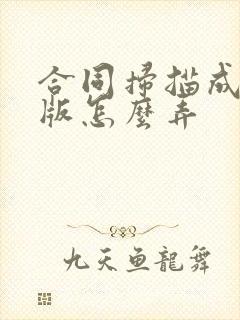 合同掃描成
版怎麼弄
九天鱼龍舞